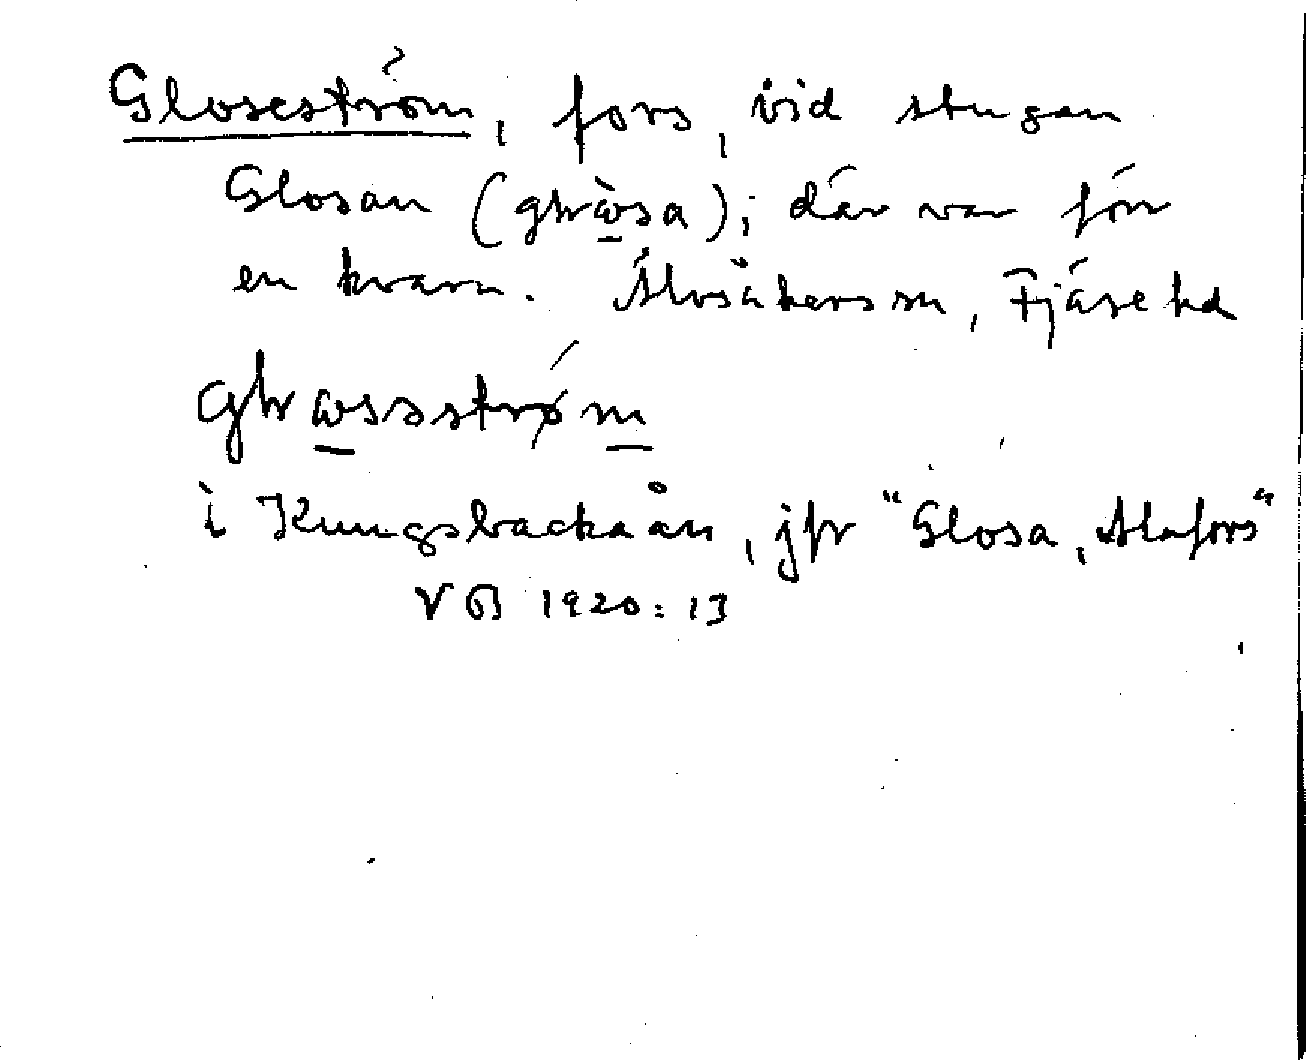 Gloseström, fors, vid stugan
Glosan (ghὼsa); där var förr
en kvarn. Älvsåkers sn, Fjäre hd
ghωsəström
i Kungsbackaån, jfr "Glosa, Alafors"
VB 1920:13